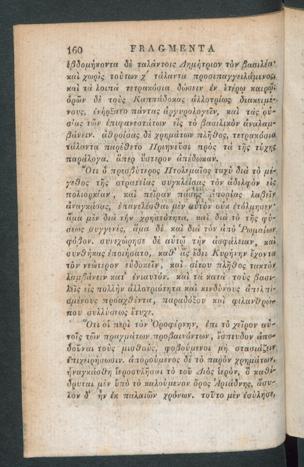 160 FRAGMENTA
ἑβδομήκοντα δὲ ταλάντοις Δημήτριον τὸν βασιλέα·
καὶ χωρὶς τούτων χ´ τάλαντα προσεπαγγειλάμενος
καὶ τὰ λοιπὰ τετρακόσια δώσειν ἐν ἑτέρῳ καιρῷ·
ὁρῶν δὲ τοὺς Καππάδοκας ἀλλοτρίως διακειμέ-
νους, ἐνήρξατο πάντας ἀργυρολογεῖν, καὶ τὰς οὐ-
σίας τῶν ἐπιφανεστάτων εἰς τὸ βασιλικὸν ἀναλαμ-
βάνειν. ἀθροίσας δὲ χρημάτων πλῆθος, τετρακόσια
τάλαντα παρέθετο Πριηνεῦσι πρὸς τὰ τῆς τύχης
παράλογα. ἅπερ ὕστερον ἀπέδωκαν.
Ὅτι ὁ πρεσβύτερος Πτολεμαῖος ταχὺ διὰ τὸ μέ-
γεθος τῆς στρατείας συγκλείσας τὸν ἀδελφὸν εἰς
πολιορκίαν, καὶ πεῖραν πάσης ἀπορίας λαβεῖν
ἀναγκάσας, ἐπανελέσθαι μὲν αὐτὸν οὐκ ἐτόλμησεν
ἅμα μὲν διὰ τὴν χρηστότητα, καὶ διὰ τὸ τῆς φύ-
σεως συγγενὲς, ἅμα δὲ καὶ διὰ τὸν ἀπὸ Ῥωμαίων
φόβον. συνεχώρησε δὲ αὐτῷ τὴν ἀσφάλειαν, καὶ
συνθήκας ἐποιήσατο, καθ' ἃς ἔδει Κυρήνην ἔχοντα
τὸν νεώτερον εὐδοκεῖν, καὶ σίτου πλῆθος τακτὸν
λαμβάνειν κατ' ἐνιαυτόν. καὶ τὰ κατὰ τοὺς βασι-
λεῖς εἰς πολλὴν ἀλλοτριότητα καὶ κινδύνους ἀπελπι-
σμένους προαχθέντα, παραδόξου καὶ φιλανθρώ-
που συλλύσεως ἔτυχε.
Ὅτι οἱ περὶ τὸν Ὀροφέρνην, ἐπὶ τὸ χεῖρον αὐ-
τοῖς τῶν πραγμάτων προβαινόντων, ἔσπευδον ἀπο-
δοῦναι τοὺς μισθοὺς, φοβούμενοι μὴ στασιάζειν
ἐπιχειρήσωσιν. ἀπορούμενος δὲ τὸ παρὸν χρημάτων,
ἠναγκάσθη ἱεροσυλῆσαι τὸ τοῦ Διὸς ἱερὸν, ὃ καθί-
δρυται μὲν ὑπὸ τὸ καλούμενον ὄρος Ἀριάδνης, ἄσυ-
λον δ' ἦν ἐκ παλαιῶν χρόνων. τοῦτο μὲν ἐσύλησε,